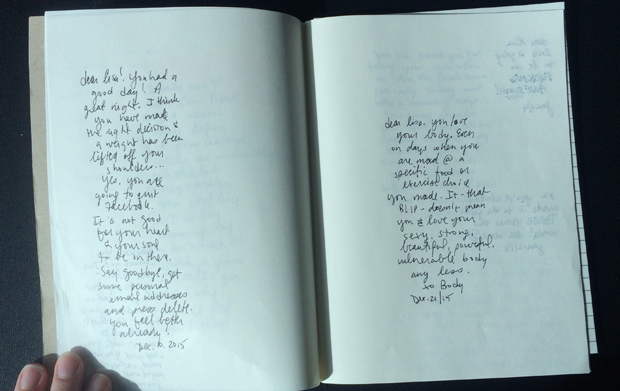 dear lisa! You had a
good day! A
great night. I think
you have made
the right decision &
a weight has been
lifted off your
shoulders...
Yes, you are
going to quit
Facebook.
It is not good
for your heart
& your soul
to be in there.
Say goodbye, get
some personal
email addresses
and press delete.
You feel better
already!
Dec. 10. 2015
dear lisa. you love
your body. Even
on days when you
are mad @ a
specific food or
exercise choice
you made. It - that
BLIP - doesn't mean
you love your
sexy, strong,
beautiful, powerful,
vulnerable body
any less.
xo Body
Dec. 21/15